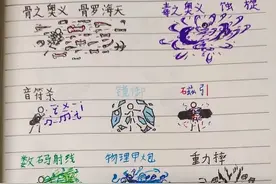 骨之奥义 骨罗海天
毒之奥义 蚀旋
音符杀 镜御 磁引
数码射线 物理甲炮 重力撑